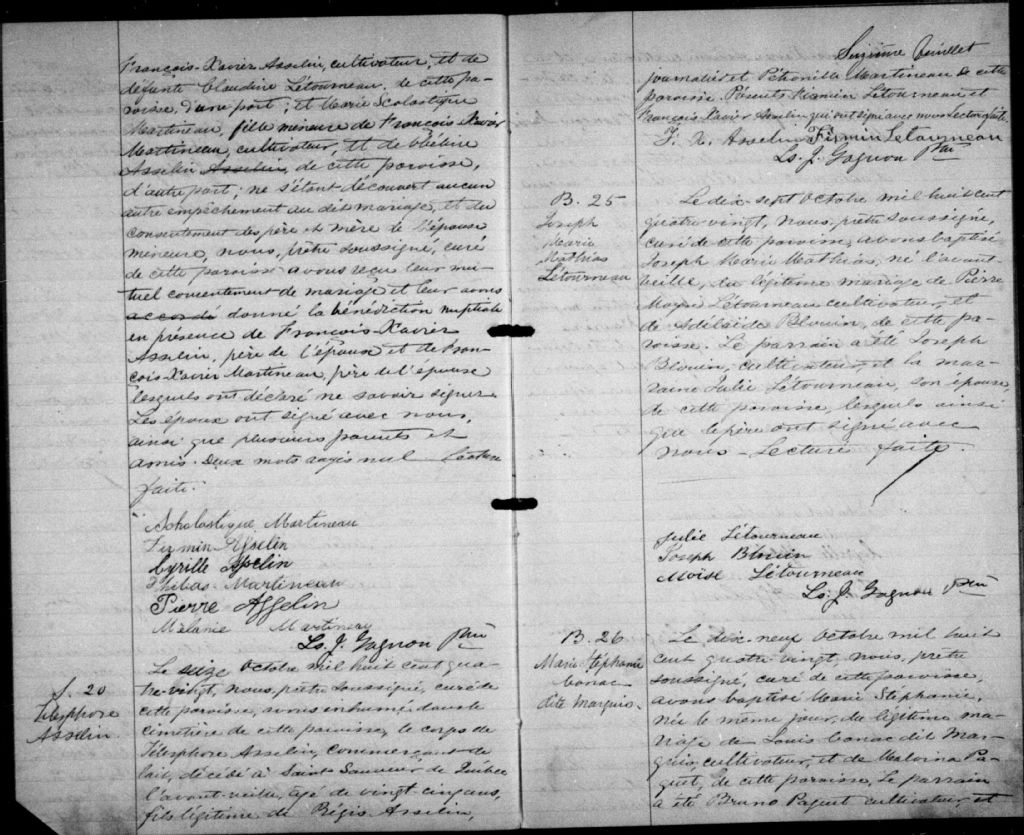 François-Xavier Asselin, cultivateur, et de
défunte Claudine Létourneau, de cette pa-
roisse, d'une part; et Marie Scolastique
Martineau, fille mineure de François-Xavier
Martineau, cultivateur, et de
Asselin Asselin, de cette paroisse,
d'autre part; ne s'étant découvert aucun
autre empêchement au dit mariage, et du
consentement des père et mère de l'épouse
mineure, nous, prêtre soussigné, curé
de cette paroisse avons reçu leur mu-
tuel consentement de mariage et leur avons
accordé donné la bénédiction nuptiale
en présence de François-Xavier
Asselin, père de l'époux et de Fran-
çois-Xavier Martineau, père de l'épouse
lesquels ont déclaré ne savoir signer
Les époux ont signé avec nous,
ainsi que plusieurs parents et
amis. Deux mots rayés nul Lecture
faite.
Scholastique Martineau
Firmin Asselin
Cyrille Asselin
Martineau
Pierre Asselin
Mélanie Martineau
Ls. J. Gagnon Ptre
S. 20
Télesphore
Asselin
Le seize Octobre mil huit cent qua-
tre-vingt, nous, prêtre soussigné, curé de
cette paroisse, avons inhumé dans le
cimetière de cette paroisse, le corps de
Télesphore Asselin, commerçant de
lait, décédé à Saint Sauveur de Québec
l'avant-veille, agé de vingt cinq ans,
fils légitime de Régis Asselin,
feuillet
journalier et Pétronille Martineau de cette
paroisse. Présents Firmin Létourneau et
François Xavier Asselin qui ont signé avec nous Lecture faite.
F. X. Asselin Firmin Létourneau
Ls. J. Gagnon Ptre
B. 25
Joseph
Marie
Mathias
Létourneau
Le dix-sept Octobre mil huit cent
quatre vingt, nous, prêtre soussigné,
curé de cette paroisse, avons baptisé
Joseph Marie Mathias, né l'avant
veille, du légitime mariage de Pierre
Moyse Létourneau cultivateur, et
de Adélaïde Blouin, de cette pa-
roisse. Le parrain a été Joseph
Blouin, cultivateur, et la mar-
raine Julie Létourneau, son épouse
de cette paroisse, lesquels ainsi
que le père ont signé avec
nous - Lecture faite.
Julie Létourneau
Joseph Blouin
Moïse Létourneau
Ls. J. Gagnon Ptre
B. 26
Marie Stéphanie
Conac
dite Marquis.
Le dix-neuf Octobre mil huit
cent quatre vingt, nous, prêtre
soussigné, curé de cette paroisse,
avons baptisé Marie Stéphanie,
née le même jour, du légitime ma-
riage de Louis Conac dit Mar-
quis, cultivateur, et de Malvina Pa-
quet, de cette paroisse. Le parrain
a été Bruno Paquet cultivateur, et